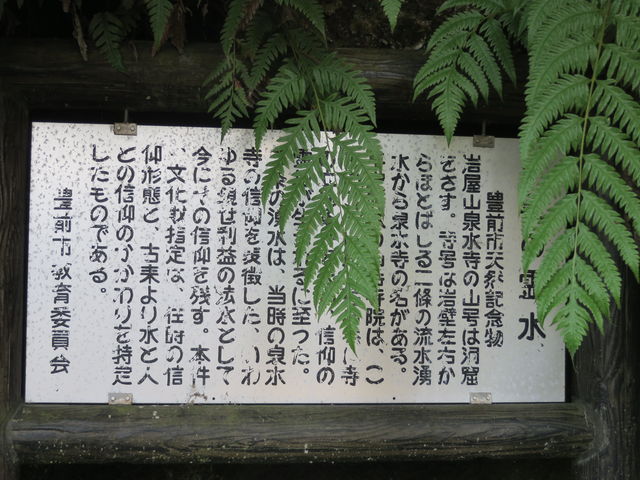 の霊水
豊前市天然記念物
岩屋山泉水寺の山号は洞窟
をさす。寺号は岩壁左右か
らほとばしる二條の流水湧
水から泉水寺の名がある。
寺院は、こ
寺
信仰の
るに至った。
の湧水は、当時の泉水
寺の信仰を象徴した、いわ
ゆる現世利益の法水として
今にその信仰を残す。本件
、文化財指定は、往時の信
仰形態と、古来より水と人
との信仰のかかわりを特定
したものである。
豊前市教育委員会